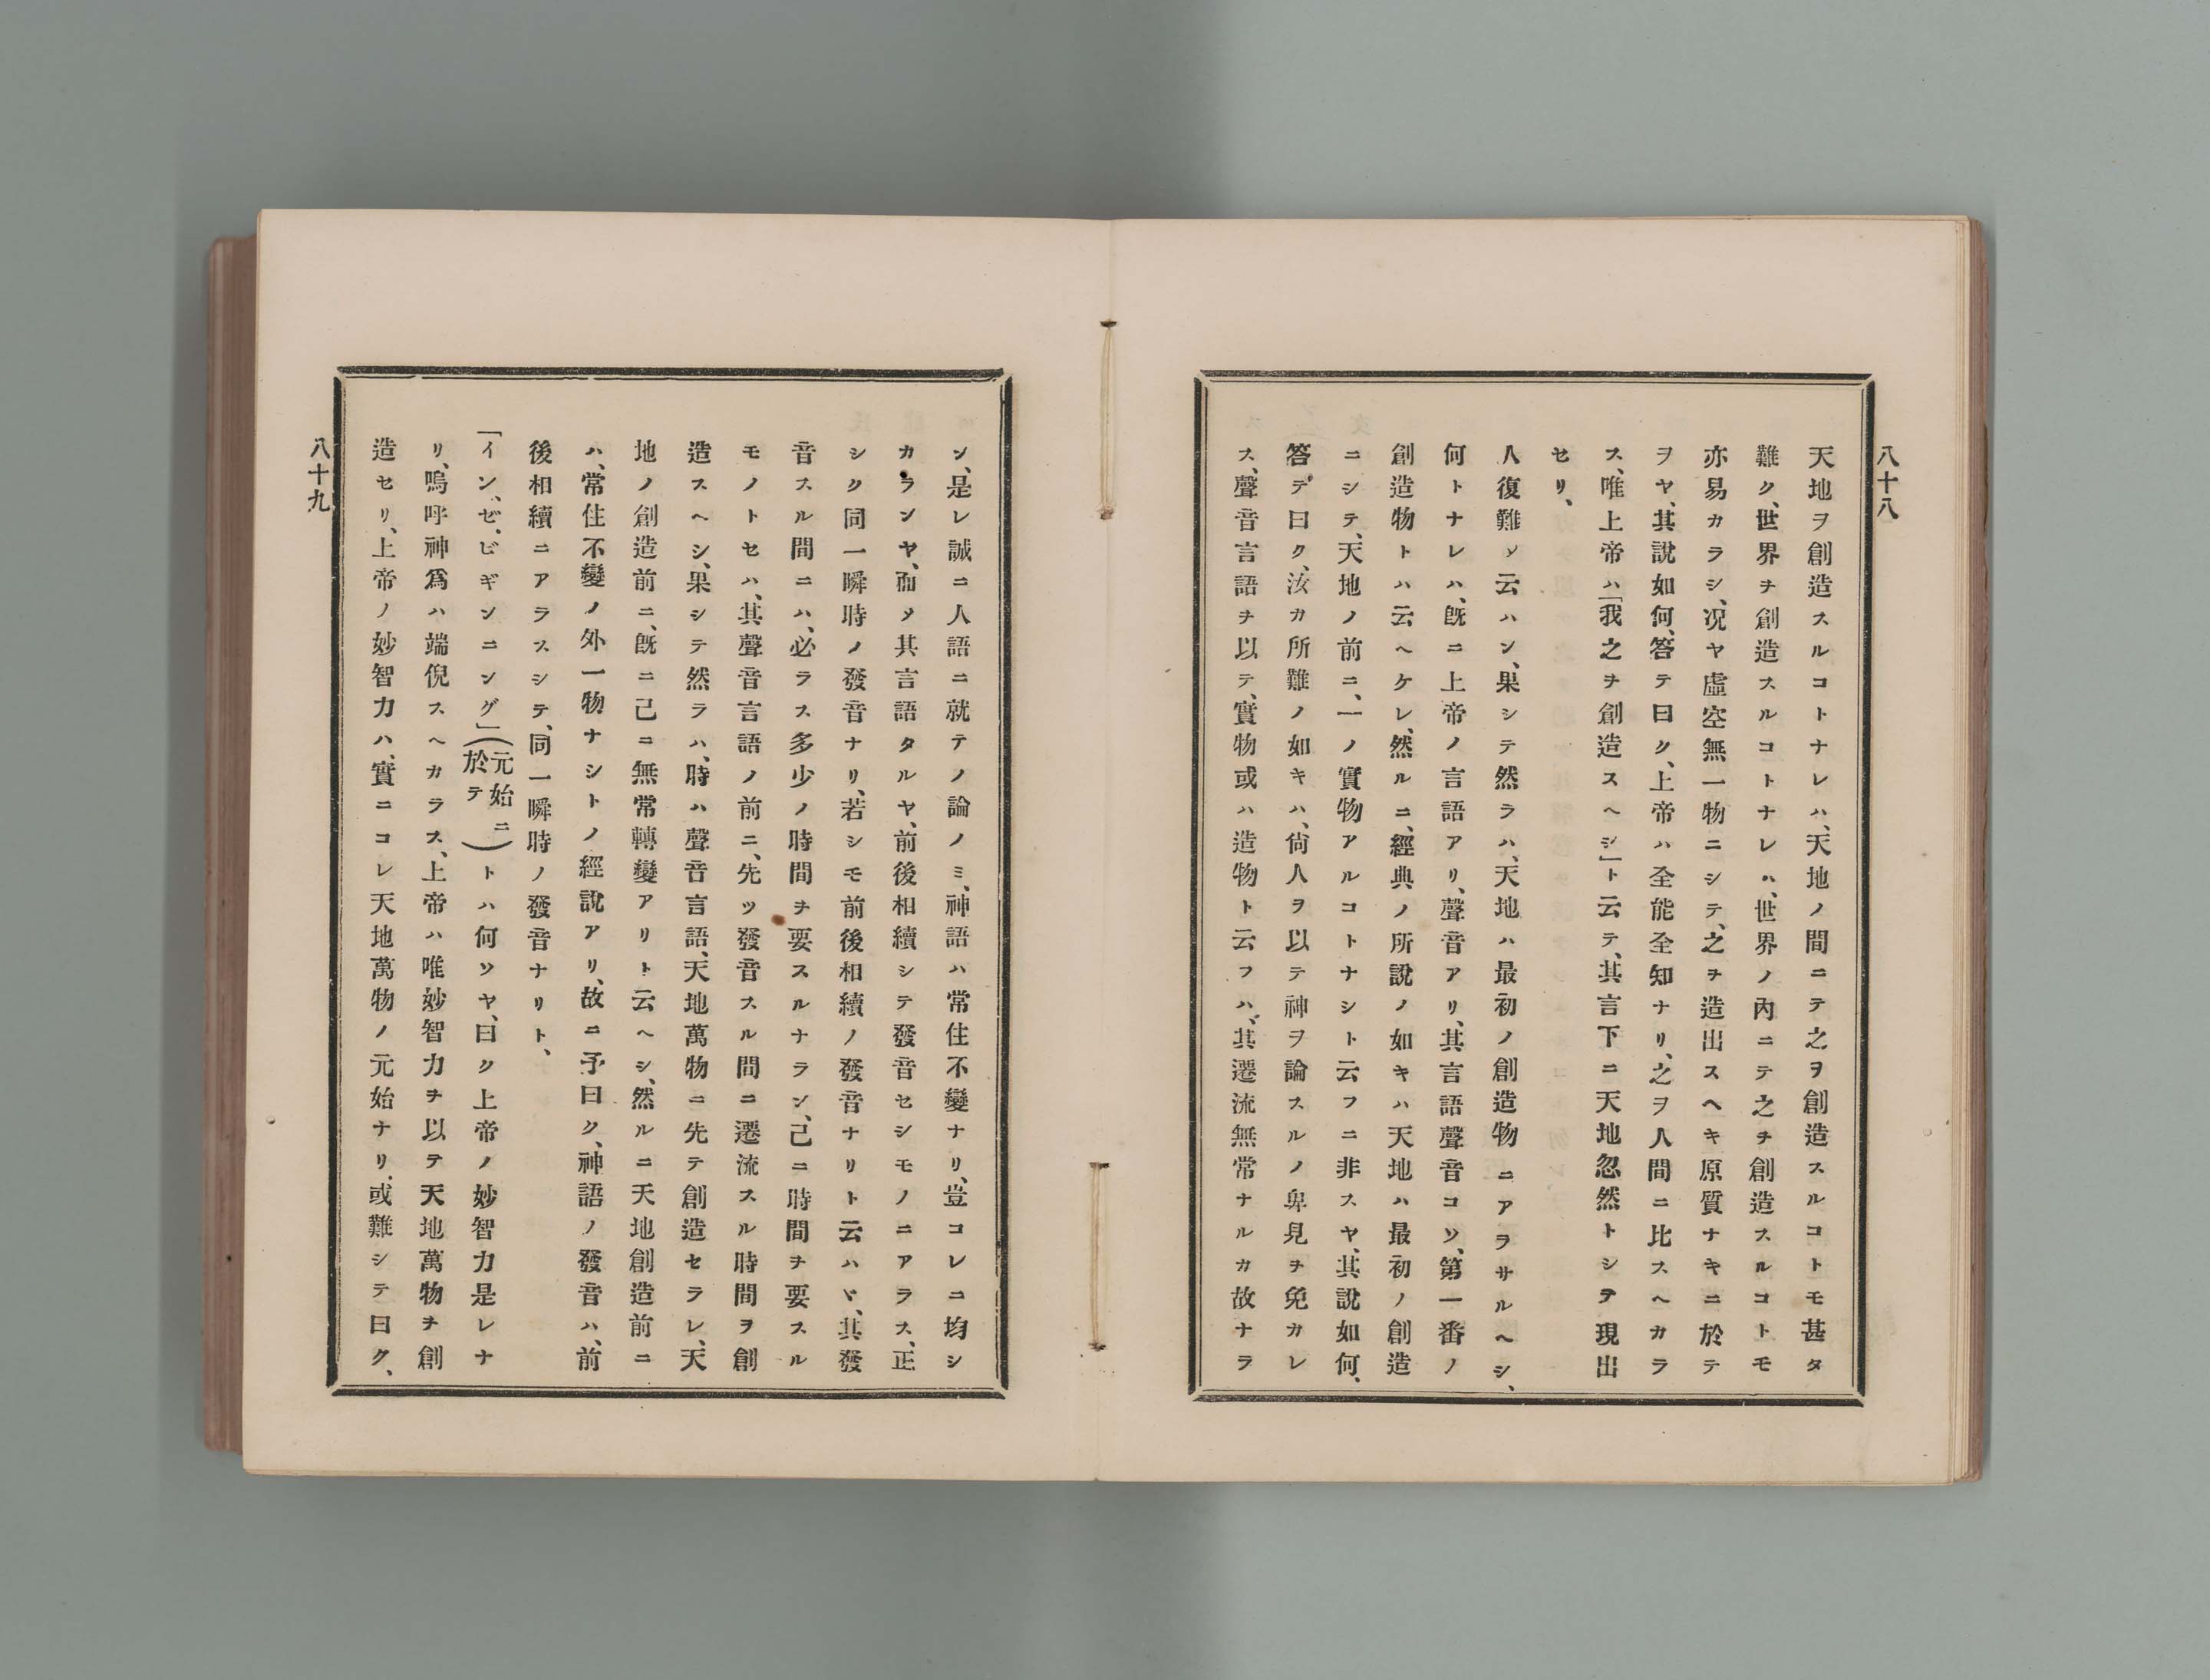 八十八
天地ヲ創造スルコトナレハ、天地ノ間ニテ之ヲ創造スルコトモ甚タ
難ク、世界ヲ創造スルコトナレハ、世界ノ內ニテ之ヲ創造スルコトモ
亦易カラシ、況ヤ虛空無一物ニシテ、之ヲ造出スヘキ原質ナキニ於テ
ヲヤ、其說如何、答テ曰ク、上帝ハ全能全知ナリ、之ヲ人間ニ比スヘカラ
ス、唯上帝ハ「我之ヲ創造スヘシ」ト云テ、其言下ニ天地忽然トシテ現出
セリ、
人復難ソ云ハン、果シテ然ラハ、天地ハ最初ノ創造物ニアラサルヘシ、
何トナレハ、旣ニ上帝ノ言語アリ、聲音アリ、其言語聲音コソ、第一番ノ
創造物トハ云ヘケレ、然ルニ、經典ノ所說ノ如キハ天地ハ最初ノ創造
ニシテ、天地ノ前ニ、一ノ實物アルコトナシト云フニ非スヤ、其說如何、
答テ曰ク、汝カ所難ノ如キハ、尙人ヲ以テ神ヲ論スルノ卑見ヲ免カレ
ス、聲音言語ヲ以テ、實物或ハ造物ト云フハ、其遷流無常ナルカ故ナラ
ン、是レ誠ニ人語ニ就テノ論ノミ、神語ハ常住不變ナリ、豈コレニ均シ
カランヤ、而メ其言語タルヤ、前後相續シテ發音セシモノニアラス、正
シク同一瞬時ノ發音ナリ、若シモ前後相續ノ發音ナリト云ハヾ、其發
音スル間ニハ、必ラス多少ノ時間ヲ要スルナラン、己ニ時間ヲ要スル
モノトセハ、其聲音言語ノ前ニ、先ツ發音スル間ニ遷流スル時間ヲ創
造スヘシ、果シテ然ラハ、時ハ聲音言語、天地萬物ニ先テ創造セラレ、天
地ノ創造前ニ、旣ニ己ニ無常轉變アリト云ヘシ、然ルニ天地創造前ニ
ハ、常住不變ノ外一物ナシトノ經說アリ、故ニ予曰ク、神語ノ發音ハ、前
後相續ニアラスシテ、同一瞬時ノ發音ナリト、
「イン、ゼ、ビギンニング」(元始ニ於テ)トハ何ソヤ、曰ク上帝ノ妙智力是レナ
リ、嗚呼神爲ハ端倪スヘカラス、上帝ハ唯妙智力ヲ以テ天地萬物ヲ創
造セリ、上帝ノ妙智力ハ、實ニコレ天地萬物ノ元始ナリ、或難シテ曰ク、
八十九